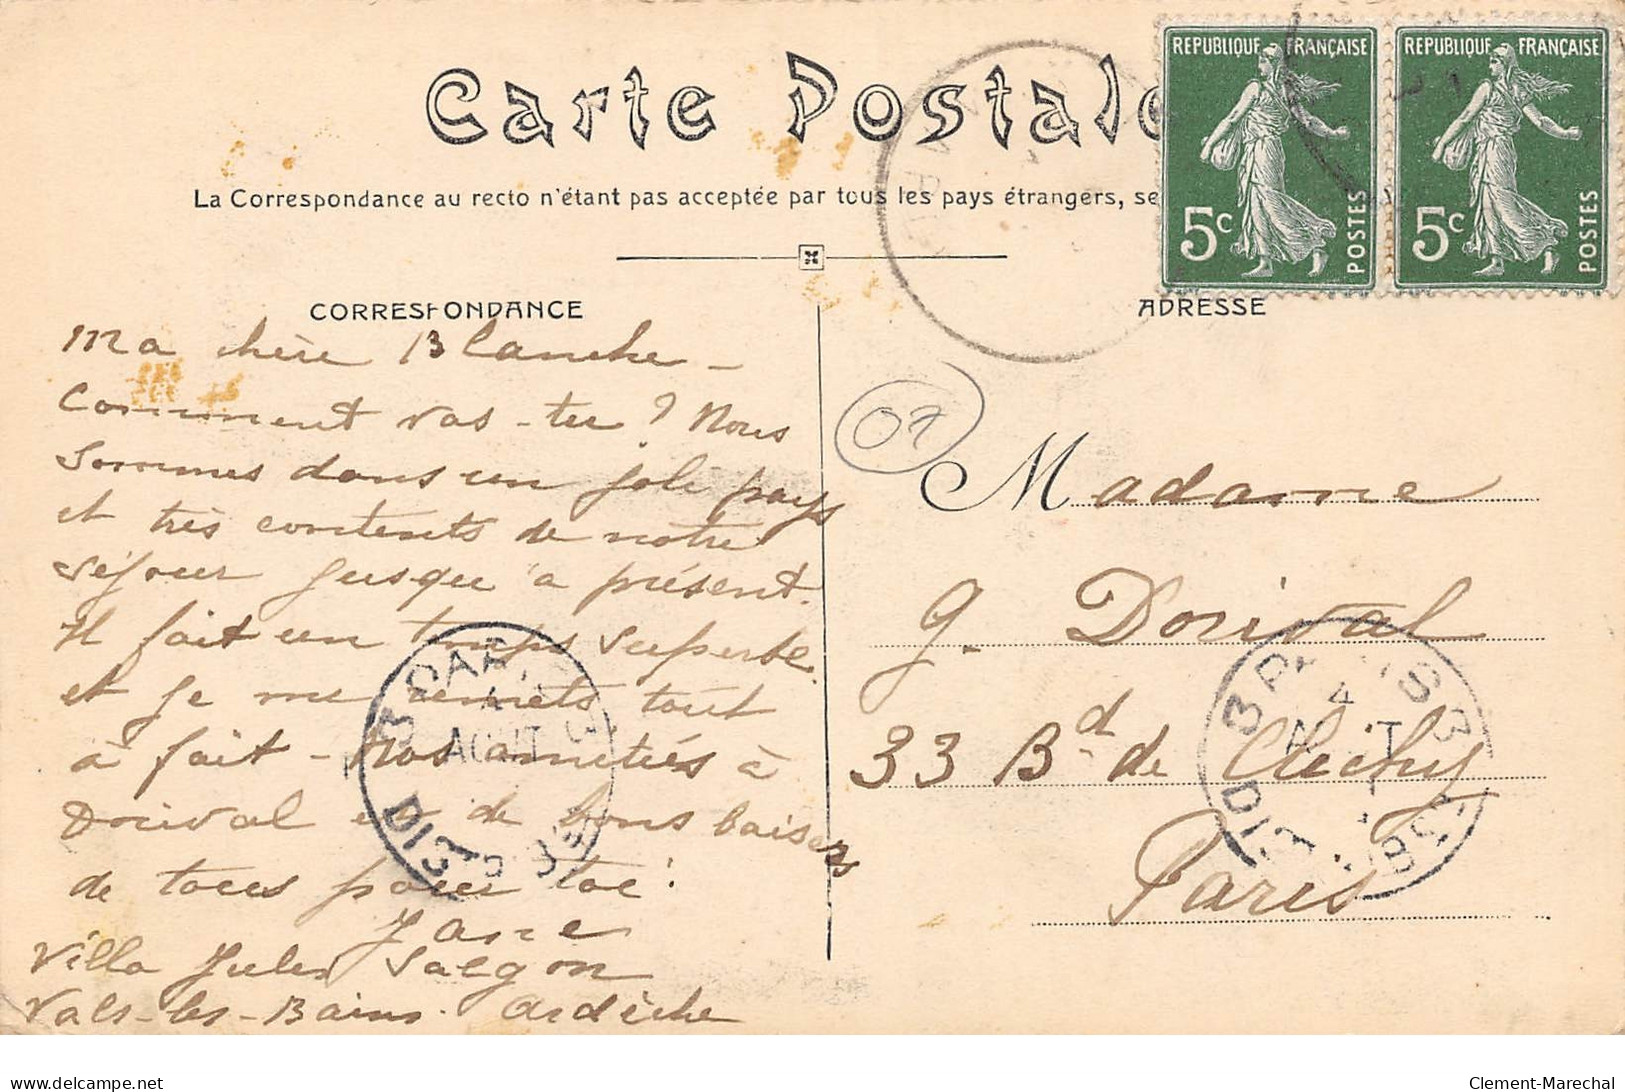 Carte Postale
REPUBLIQUE FRANÇAISE
5c
POSTES
REPUBLIQUE FRANÇAISE
5c
POSTES
La Correspondance au recto n'étant pas acceptée par tous les pays étrangers, se
CORRESPONDANCE
Ma chère Blanche -
Comment vas-tu ? Nous
sommes dans un joli pays
et très contents de notre
séjour jusqu'à présent.
Il fait un temps superbe
et je me remets tout
à fait - Nos amitiés à
Dorival et de bons baisers
de tous pour toi.
Jane
Villa Jules Salgon
Vals-les-Bains. Ardèche
ADRESSE
07
Madame
G. Dorival
33 Bd de Clichy
Paris
4
AOUT
3 PARIS 3
4
DIST
delcampe.net
Clement-Marechal